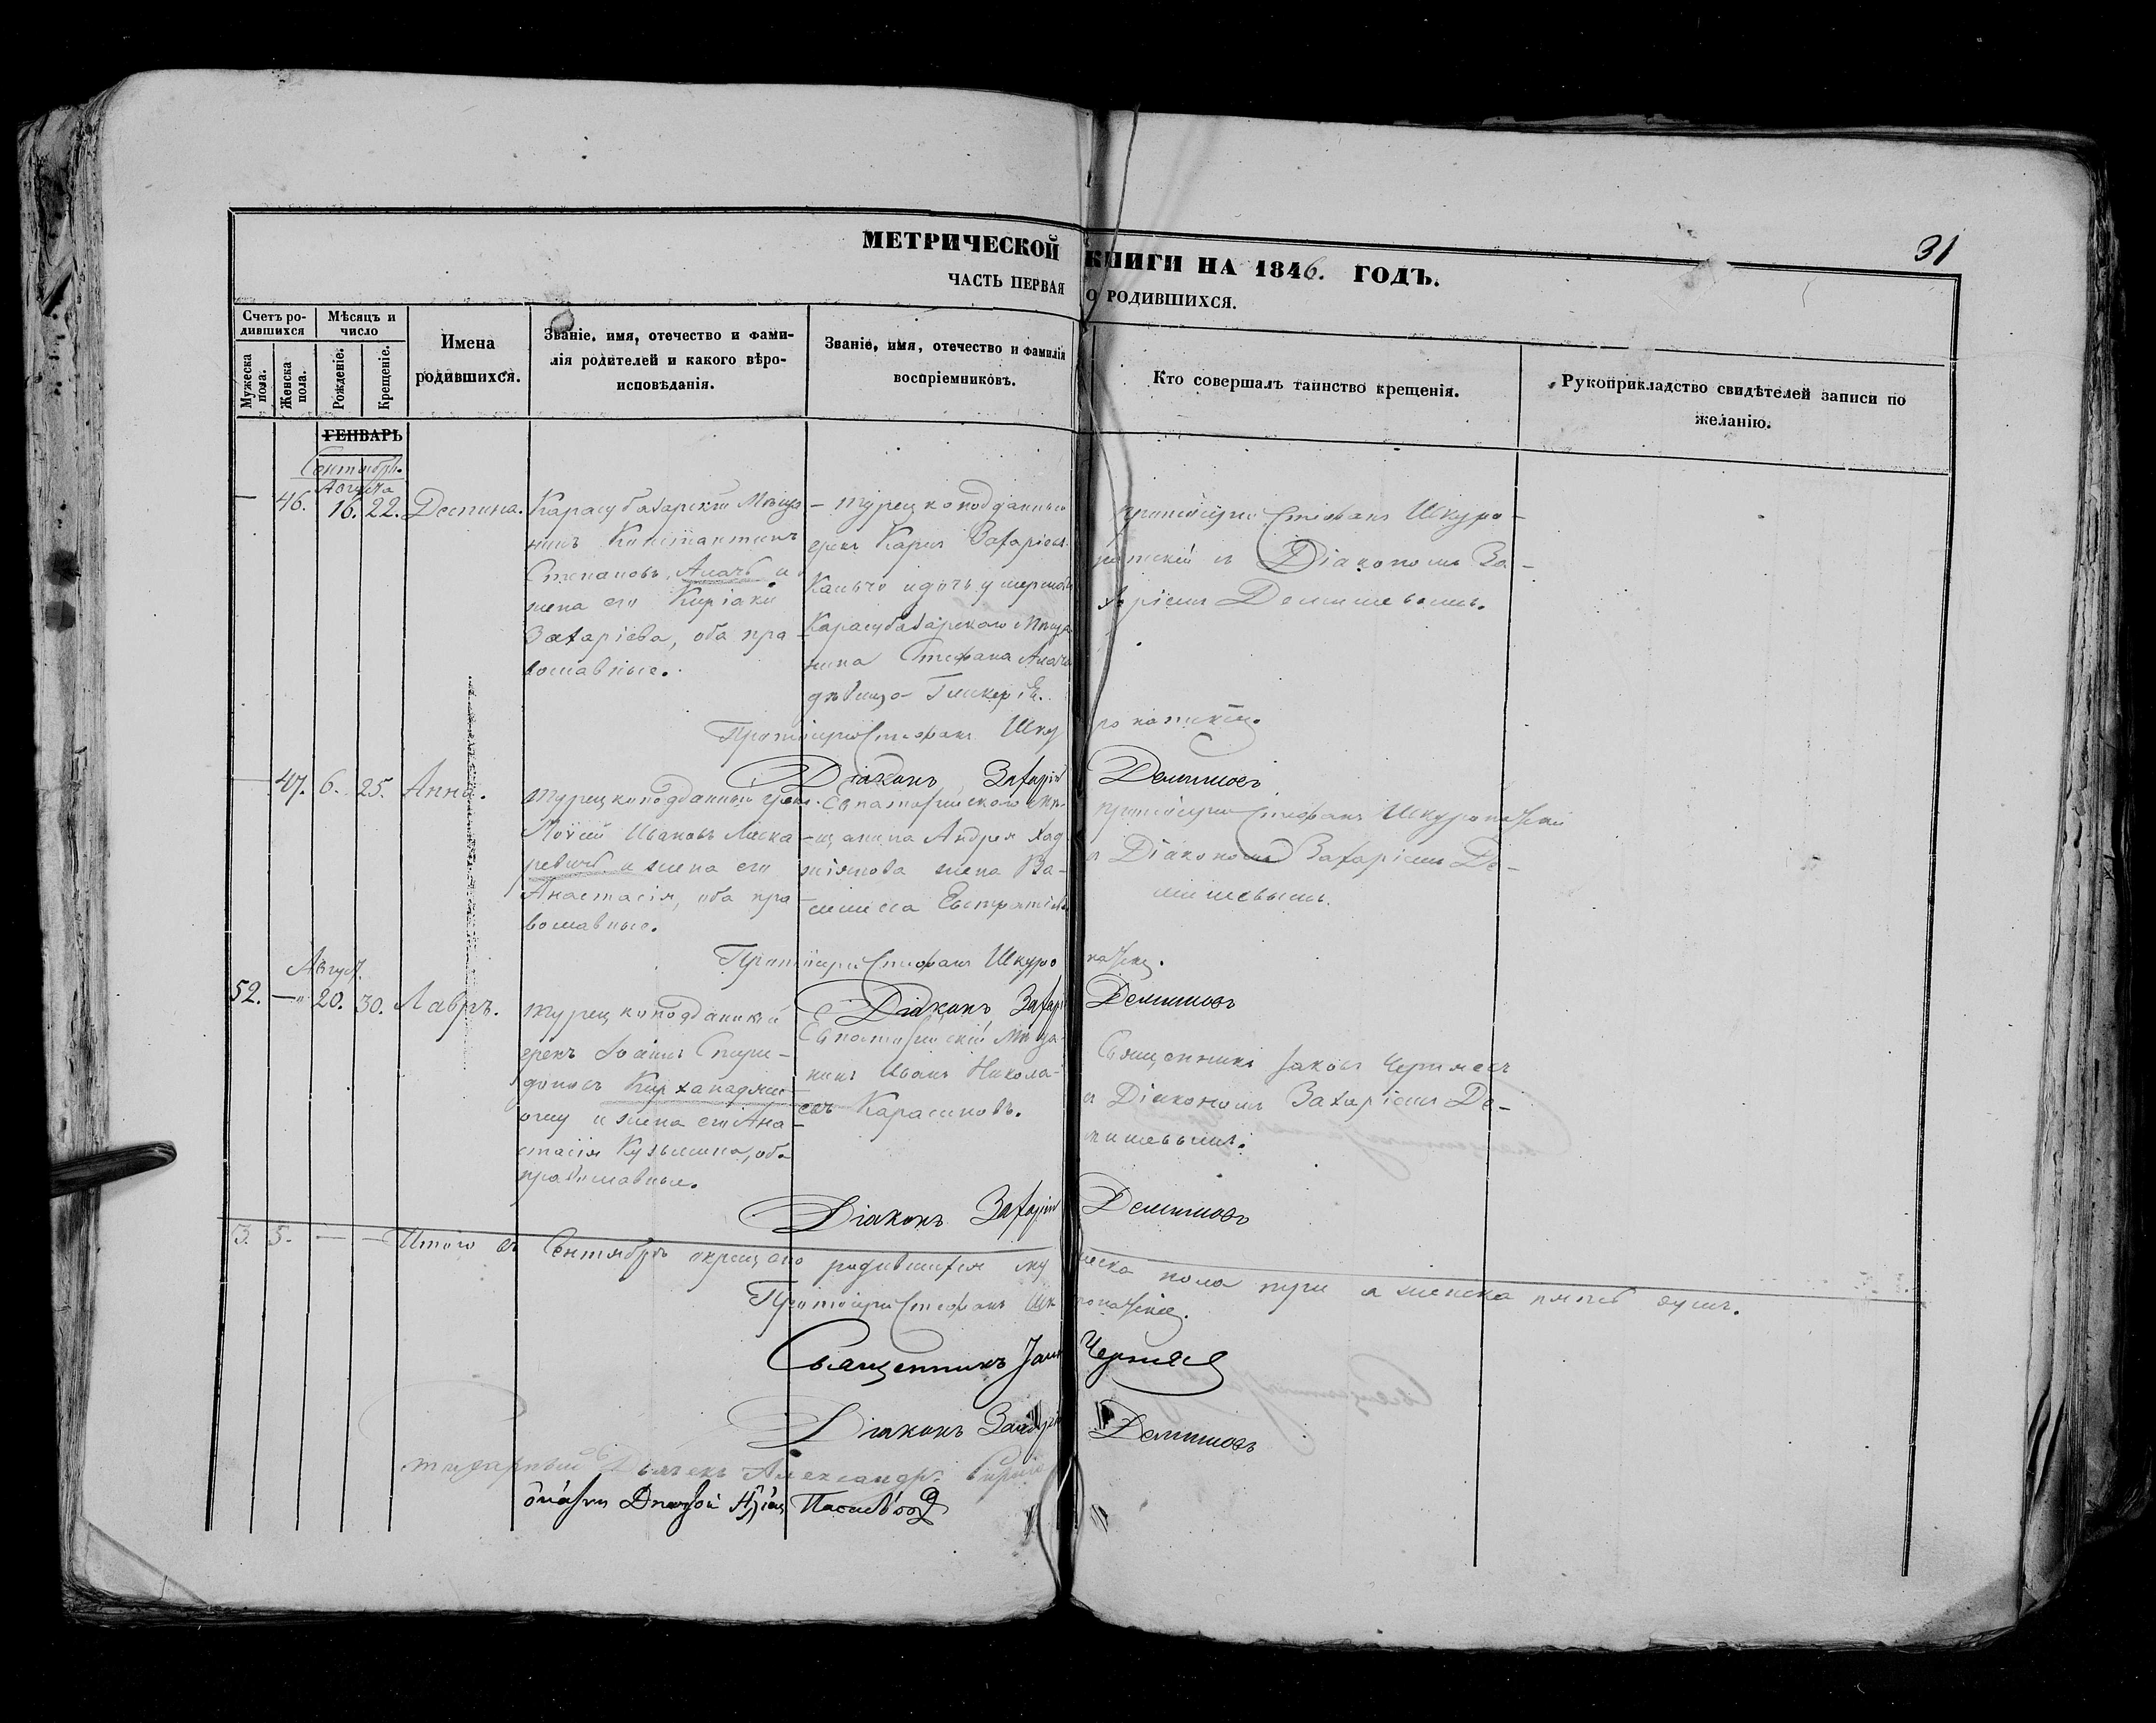 31
МЕТРИЧЕСКОЙ КНИГИ НА 1846. ГОДЪ.
ЧАСТЬ ПЕРВАЯ О РОДИВШИХСЯ.
Счетъ ро-
дившихся
Мужеска
пола.
Женска
пола.
Мѣсяцъ и
число
Рожденіе.
Крещеніе.
Имена
родившихся.
Званіе, имя, отечество и фами-
лія родителей и какого вѣро-
исповѣданія.
Званіе, имя, отечество и фамилія
воспріемниковъ.
Кто совершалъ таинство крещенія.
Рукоприкладство свидѣтелей записи по
желанію.
ГЕНВАРЬ
Сентябрь.
Августа
— 46. 16. 22. Деспина.
Карасубазарскій Мѣща-
нинъ Константинъ
Степановъ и
жена его Киріаки
Захаріева, оба пра-
вославные.
турецкоподданный
грекъ Захаріевъ
и дочь умершаго
Карасубазарскаго Мѣща-
нина Стефана
дѣвица Гликерія.
Протоіерей Стефанъ Шкуро-
патскій съ Діакономъ За-
харіемъ Демишевымъ.
Протоіерей Стефанъ Шкуропатскій.
Діаконъ Захарій Демишевъ
— 47. 6. 25. Анна.
турецкоподданный грекъ
Ивановъ Ласка-
ревичъ и жена его
Анастасія, оба пра-
вославные.
Евпаторійскаго мѣ-
щанина Андрея Хад-
жіянова жена Ва-
силисса Евстратіева
Протоіерей Стефанъ Шкуропатскій
съ Діакономъ Захаріемъ Де-
мишевымъ.
Протоіерей Стефанъ Шкуропатскій.
Діаконъ Захарій Демишевъ
Август.
52. — 20. 30. Лавръ.
турецкоподданный
грекъ Іоаннъ Спири-
доновъ
и жена его Ана-
стасія Кузьмина, оба
православные.
Евпаторійскій Мѣща-
нинъ Иванъ Никола-
евъ Карасиновъ.
Священникъ Іаковъ Чернявъ
съ Діакономъ Захаріемъ Де-
мишевымъ.
Діаконъ Захарій Демишевъ
3. 5. — — Итого въ Сентябрѣ окрещено родившихся мужеска пола три а женска пять душъ.
Протоіерей Стефанъ Шкуропатскій.
Священникъ Іаковъ
Діаконъ Захарій Демишевъ
Дьячекъ Александръ